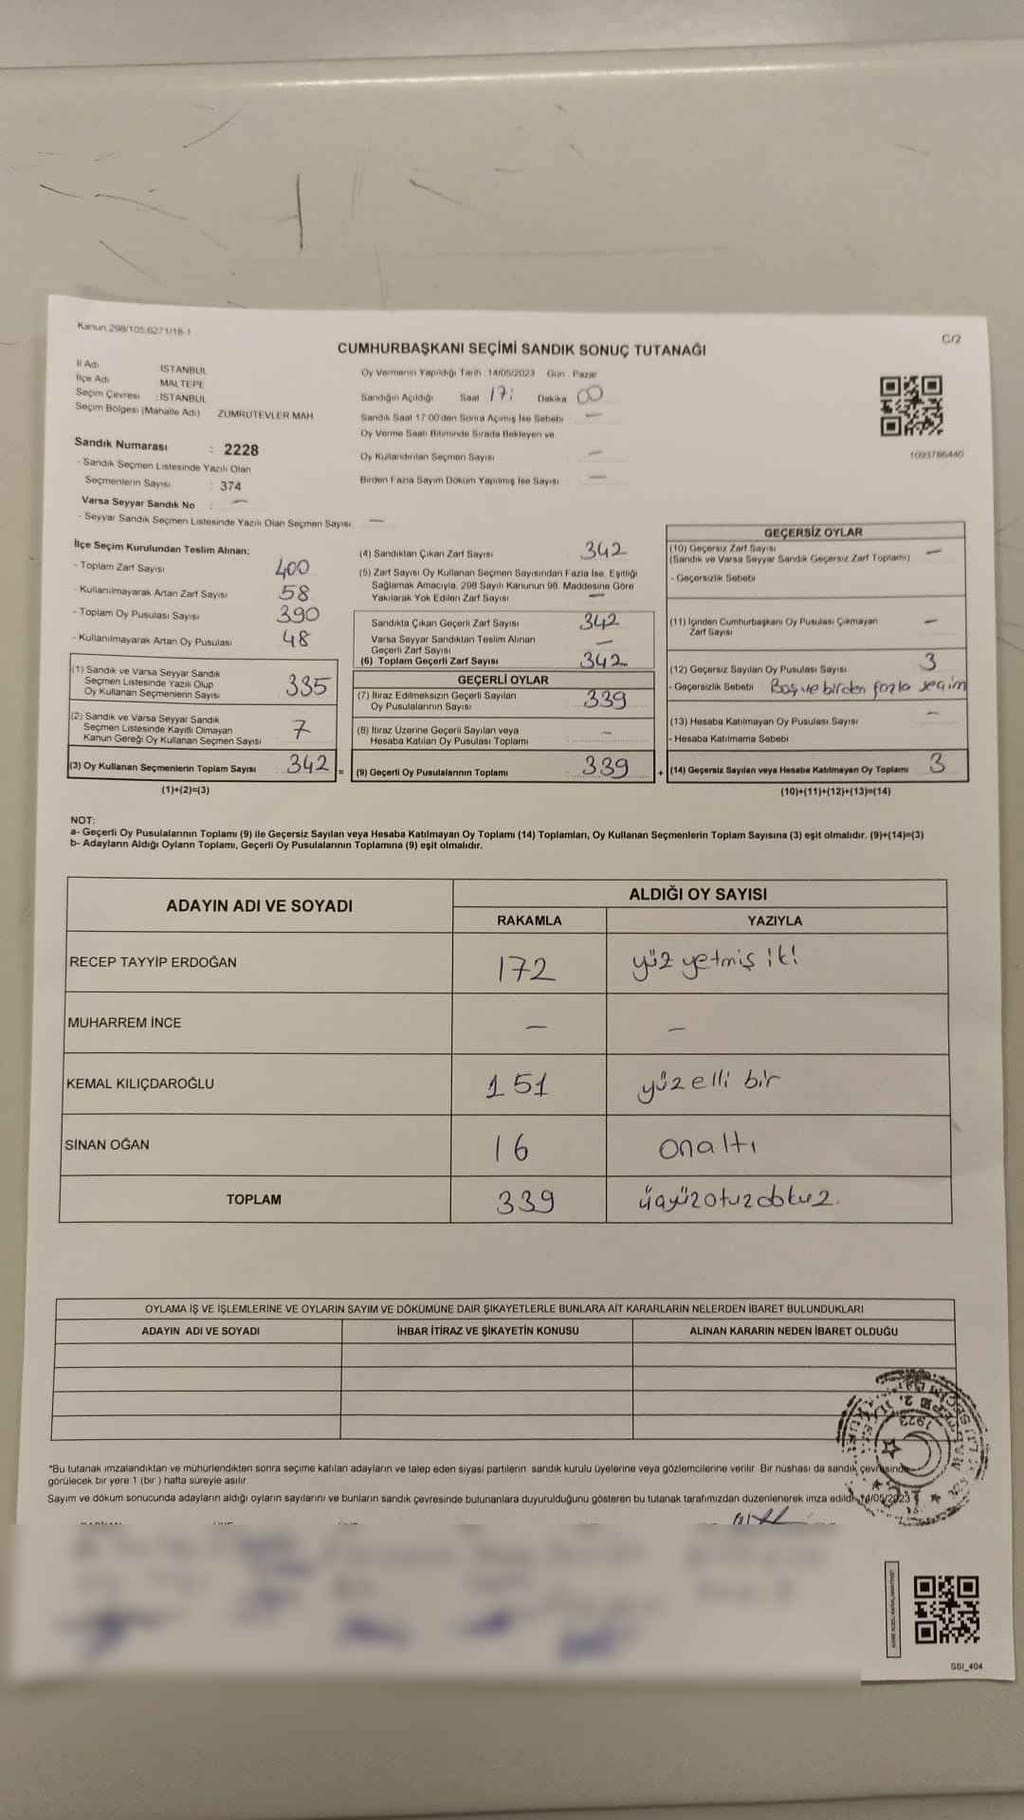 Kanun:298/105,6271/18-1
C/2
CUMHURBAŞKANI SEÇİMİ SANDIK SONUÇ TUTANAĞI
İl Adı : İSTANBUL
İlçe Adı : MALTEPE
Seçim Çevresi : İSTANBUL
Seçim Bölgesi (Mahalle Adı) : ZÜMRÜTEVLER MAH
Oy Vermenin Yapıldığı Tarih : 14/05/2023 Gün : Pazar
Sandığın Açıldığı Saat 17: Dakika 00
Sandık Saat 17:00'den Sonra Açılmış İse Sebebi —
Oy Verme Saati Bitiminde Sırada Bekleyen ve
Oy Kullandırılan Seçmen Sayısı —
Birden Fazla Sayım Döküm Yapılmış İse Sayısı —
1093786440
Sandık Numarası : 2228
- Sandık Seçmen Listesinde Yazılı Olan
Seçmenlerin Sayısı : 374
Varsa Seyyar Sandık No : —
- Seyyar Sandık Seçmen Listesinde Yazılı Olan Seçmen Sayısı —
İlçe Seçim Kurulundan Teslim Alınan:
- Toplam Zarf Sayısı 400
- Kullanılmayarak Artan Zarf Sayısı 58
- Toplam Oy Pusulası Sayısı 390
- Kullanılmayarak Artan Oy Pusulası 48
(1) Sandık ve Varsa Seyyar Sandık
Seçmen Listesinde Yazılı Olup
Oy Kullanan Seçmenlerin Sayısı 335
(2) Sandık ve Varsa Seyyar Sandık
Seçmen Listesinde Kayıtlı Olmayan
Kanun Gereği Oy Kullanan Seçmen Sayısı 7
(3) Oy Kullanan Seçmenlerin Toplam Sayısı 342 =
(1)+(2)=(3)
(4) Sandıktan Çıkan Zarf Sayısı 342
(5) Zarf Sayısı Oy Kullanan Seçmen Sayısından Fazla İse, Eşitliği
Sağlamak Amacıyla, 298 Sayılı Kanunun 98. Maddesine Göre
Yakılarak Yok Edilen Zarf Sayısı —
Sandıkta Çıkan Geçerli Zarf Sayısı 342
Varsa Seyyar Sandıktan Teslim Alınan
Geçerli Zarf Sayısı —
(6) Toplam Geçerli Zarf Sayısı 342
GEÇERLİ OYLAR
(7) İtiraz Edilmeksizin Geçerli Sayılan
Oy Pusulalarının Sayısı 339
(8) İtiraz Üzerine Geçerli Sayılan veya
Hesaba Katılan Oy Pusulası Toplamı —
(9) Geçerli Oy Pusulalarının Toplamı 339 +
GEÇERSİZ OYLAR
(10) Geçersiz Zarf Sayısı —
(Sandık ve Varsa Seyyar Sandık Geçersiz Zarf Toplamı)
- Geçersizlik Sebebi
(11) İçinden Cumhurbaşkanı Oy Pusulası Çıkmayan
Zarf Sayısı —
(12) Geçersiz Sayılan Oy Pusulası Sayısı 3
- Geçersizlik Sebebi Boş ve birden fazla seçim
(13) Hesaba Katılmayan Oy Pusulası Sayısı —
- Hesaba Katılmama Sebebi
(14) Geçersiz Sayılan veya Hesaba Katılmayan Oy Toplamı 3
(10)+(11)+(12)+(13)=(14)
NOT:
a- Geçerli Oy Pusulalarının Toplamı (9) ile Geçersiz Sayılan veya Hesaba Katılmayan Oy Toplamı (14) Toplamları, Oy Kullanan Seçmenlerin Toplam Sayısına (3) eşit olmalıdır. (9)+(14)=(3)
b- Adayların Aldığı Oyların Toplamı, Geçerli Oy Pusulalarının Toplamına (9) eşit olmalıdır.
ADAYIN ADI VE SOYADI
ALDIĞI OY SAYISI
RAKAMLA YAZIYLA
RECEP TAYYİP ERDOĞAN 172 yüz yetmiş iki
MUHARREM İNCE — —
KEMAL KILIÇDAROĞLU 151 yüz elli bir
SİNAN OĞAN 16 onaltı
TOPLAM 339 üçyüzotuzdokuz.
OYLAMA İŞ VE İŞLEMLERİNE VE OYLARIN SAYIM VE DÖKÜMÜNE DAİR ŞİKAYETLERLE BUNLARA AİT KARARLARIN NELERDEN İBARET BULUNDUKLARI
ADAYIN ADI VE SOYADI İHBAR İTİRAZ VE ŞİKAYETİN KONUSU ALINAN KARARIN NEDEN İBARET OLDUĞU
*Bu tutanak imzalandıktan ve mühürlendikten sonra seçime katılan adayların ve talep eden siyasi partilerin sandık kurulu üyelerine veya gözlemcilerine verilir. Bir nüshası da sandık çevresinde
görülecek bir yere 1 (bir ) hafta süreyle asılır.
Sayım ve döküm sonucunda adayların aldığı oyların sayılarını ve bunların sandık çevresinde bulunanlara duyurulduğunu gösteren bu tutanak tarafımızdan düzenlenerek imza edildi. 14/05/2023
1923
GSI_404